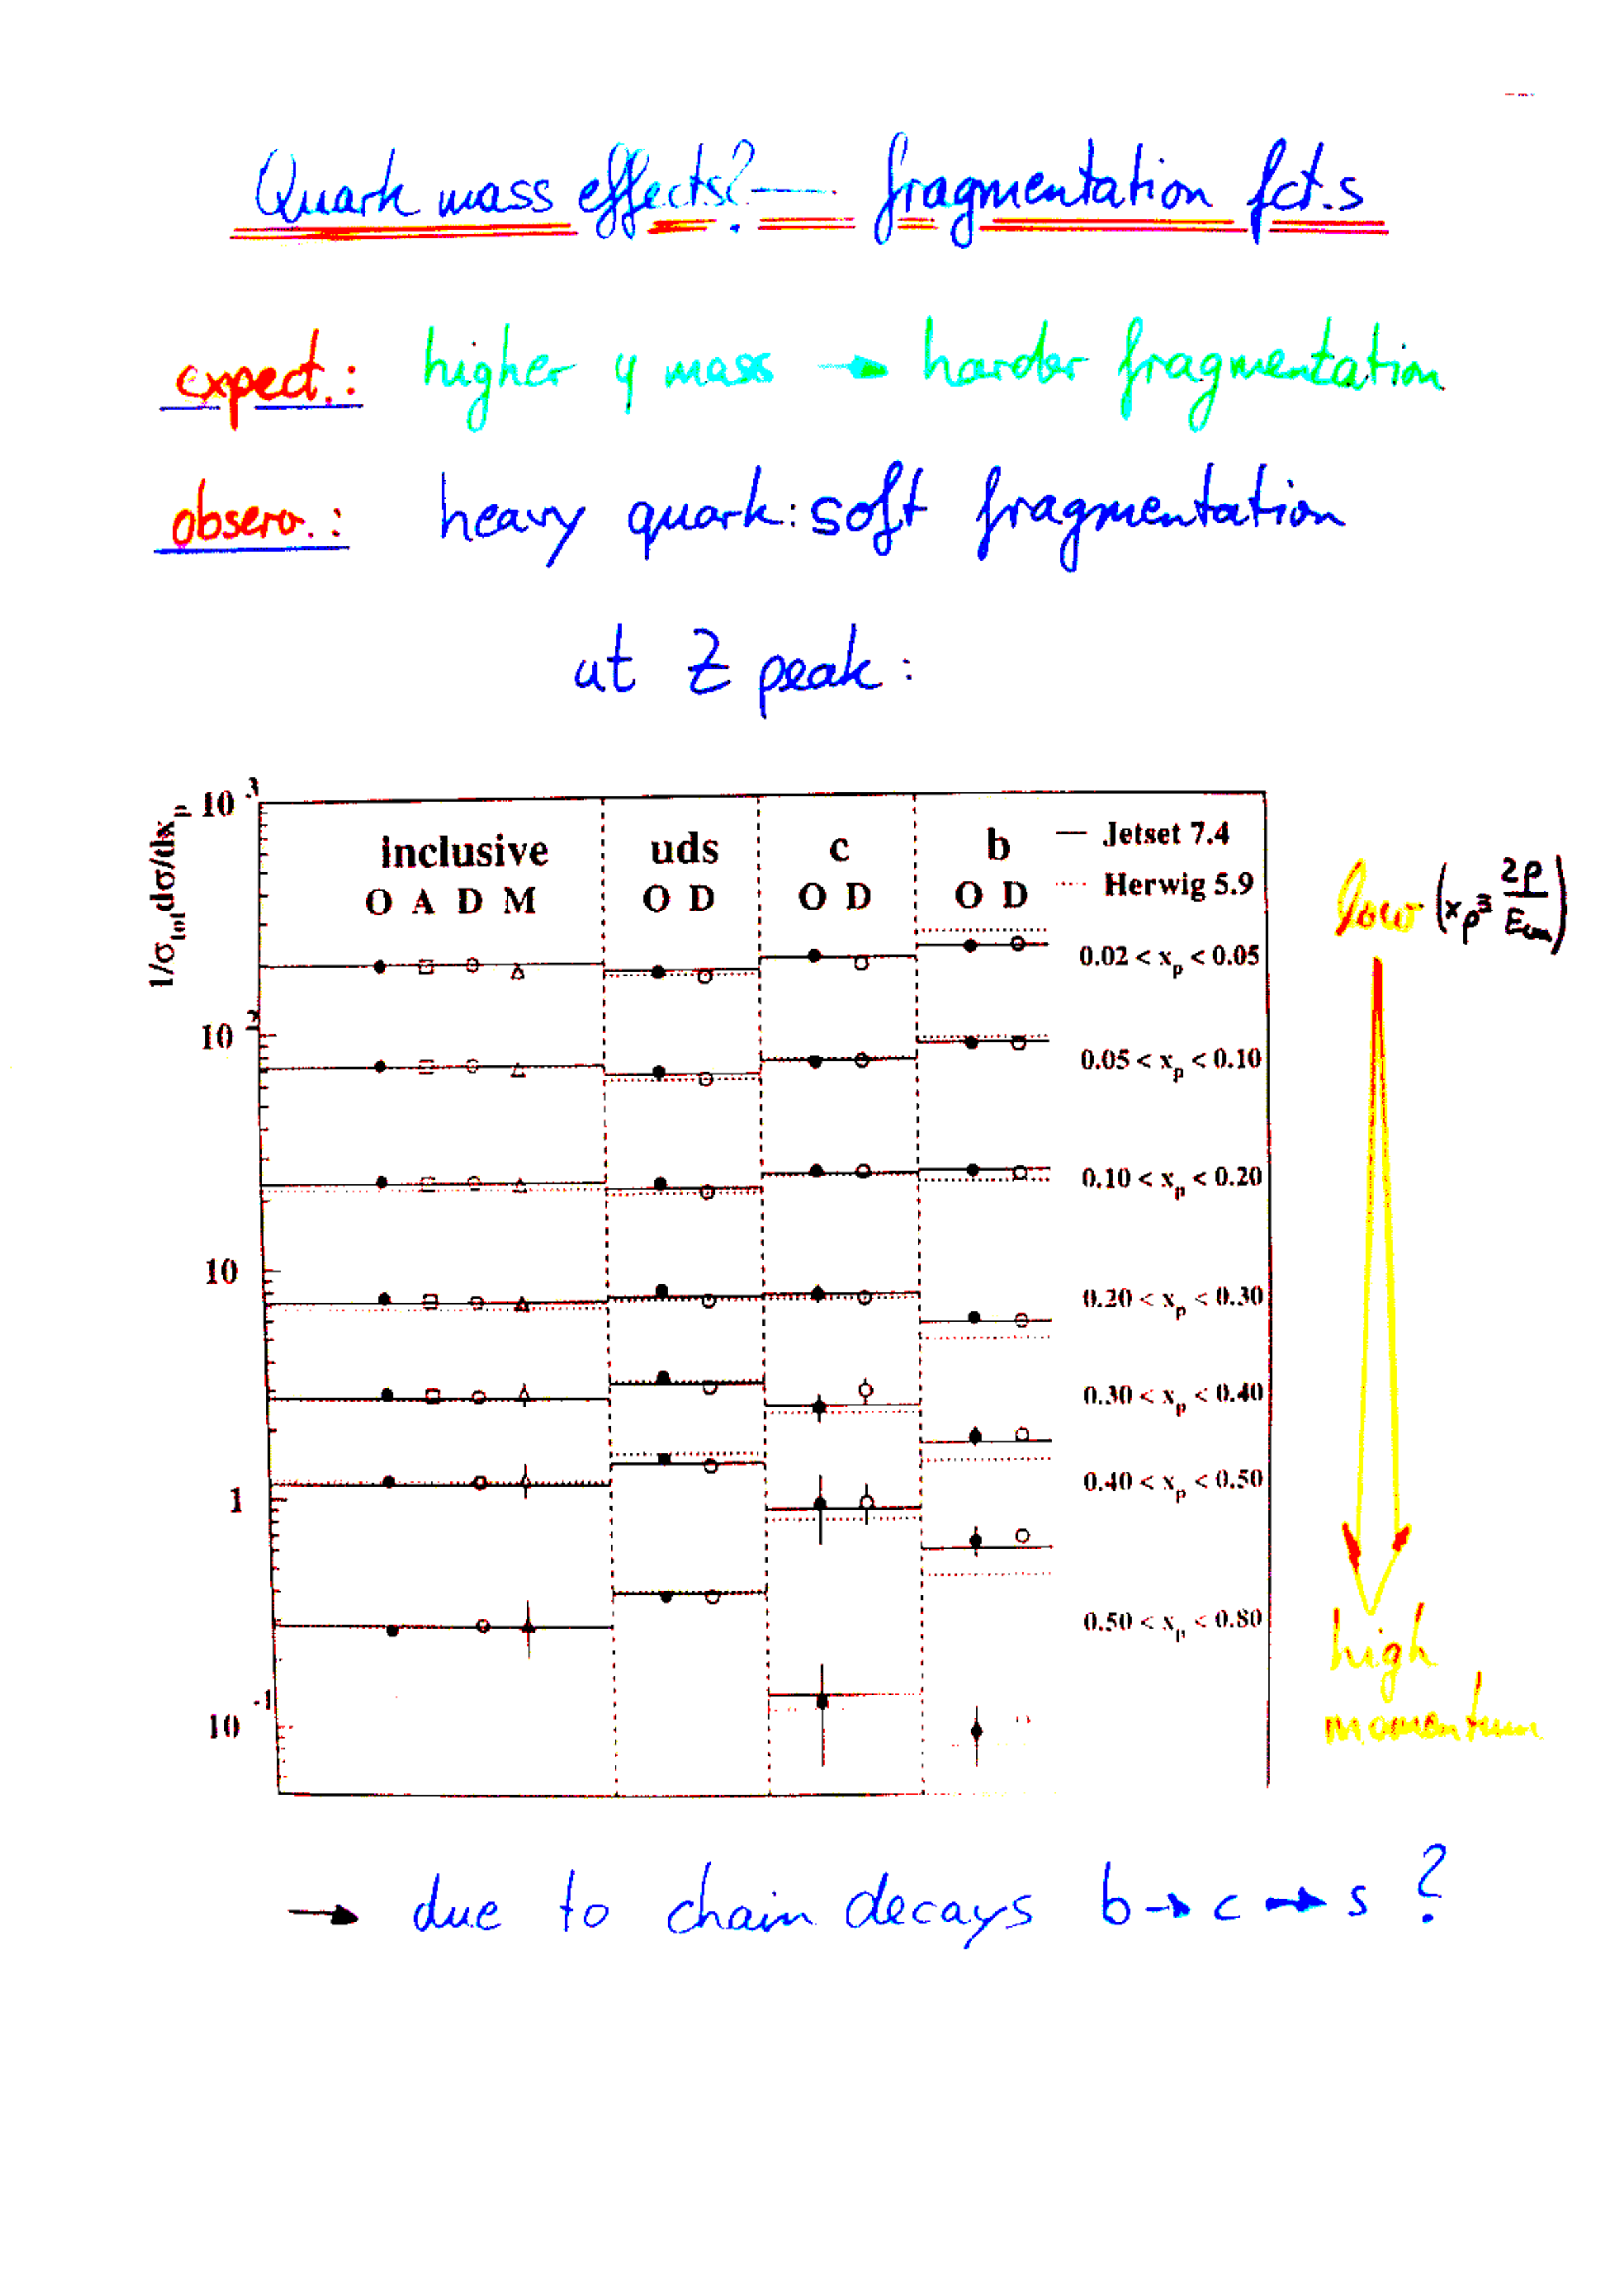 Quark mass effects? — fragmentation fct.s
expect.: higher q mass → harder fragmentation
observ.: heavy quark: soft fragmentation
at Z peak:
1/σtot dσ/dxp
10^3
10^2
10
1
10^-1
inclusive
O A D M
uds
O D
c
O D
b
O D
— Jetset 7.4
Herwig 5.9
0.02 < xp < 0.05
0.05 < xp < 0.10
0.10 < xp < 0.20
0.20 < xp < 0.30
0.30 < xp < 0.40
0.40 < xp < 0.50
0.50 < xp < 0.80
low (xp ≡ 2p/Ecm)
high
momentum
→ due to chain decays b → c → s ?